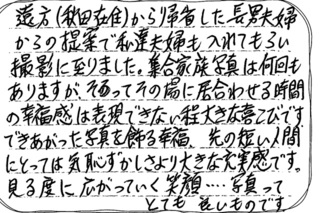 遠方(秋田在住)から帰省した長男夫婦
からの提案で私達夫婦も入れてもらい
撮影に至りました。集合家族写真は何回も
ありますが、そろってその場に居合わせる時間
の幸福感は表現できない程大きな喜こびです
できあがった写真を飾る幸福、先の短い人間
にとっては気恥ずかしさより大きな充実感です。
見る度に広がっていく笑顔‥‥写真って
とても良いものです